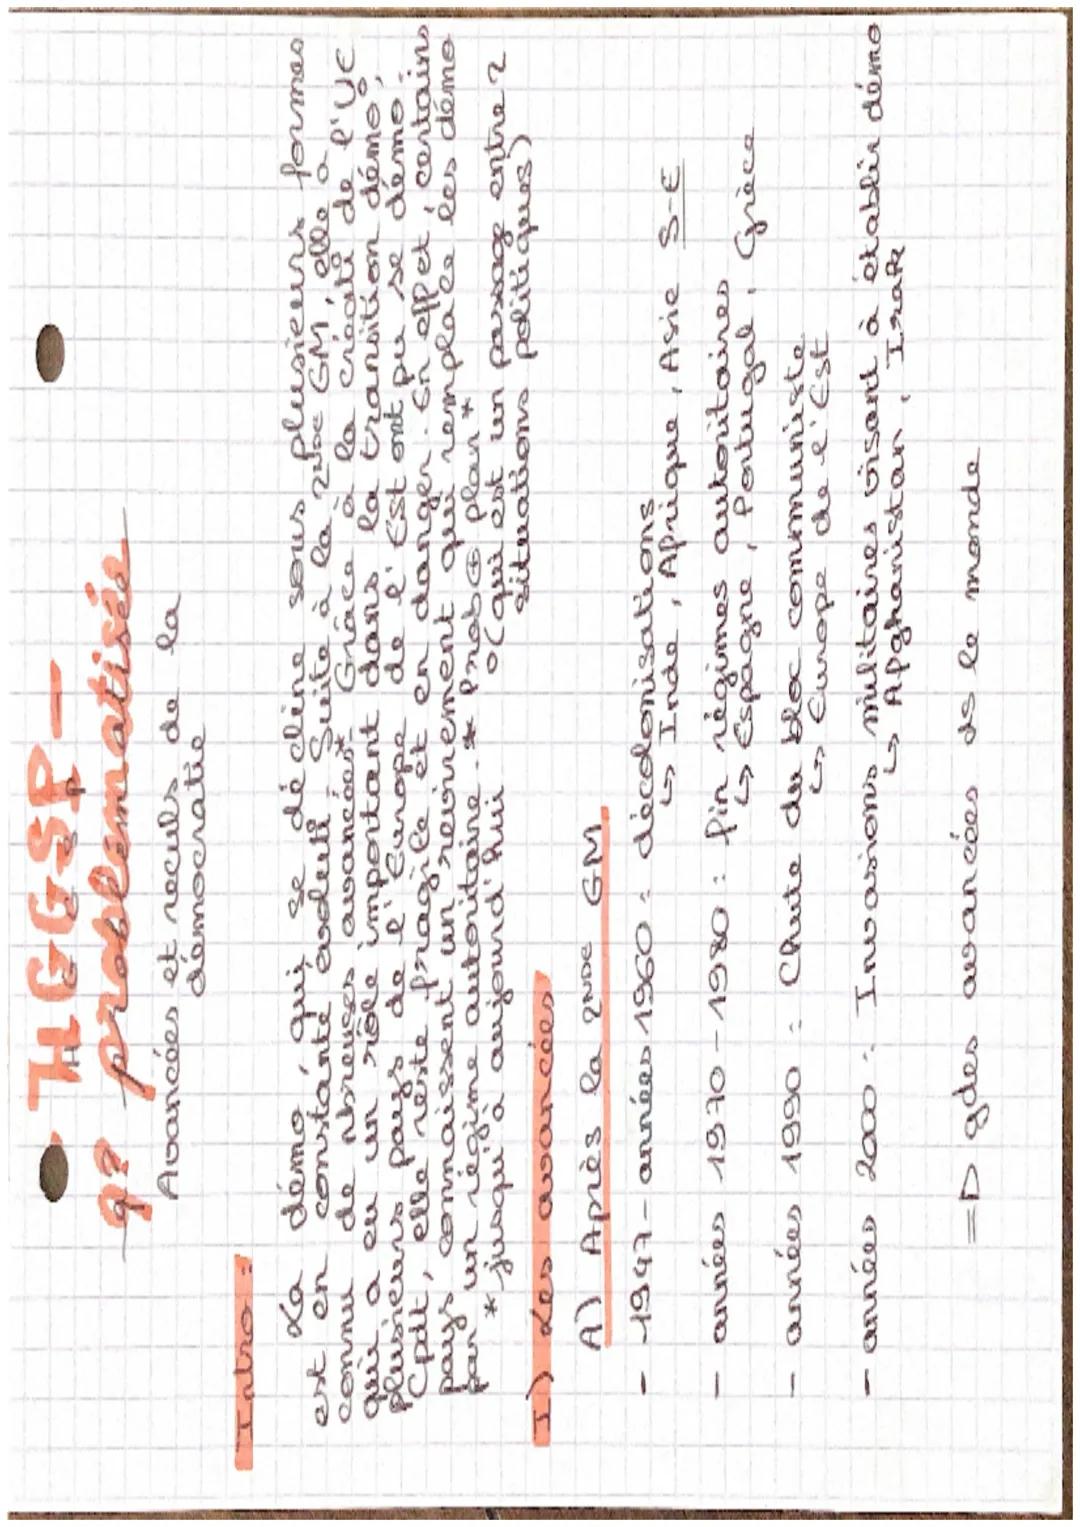 HGGSP -
q? problématisée
Avancées et reculs de la
démocratie
Intro :
La démo, qui se décline sous plusieurs formes
est en constante évolut°. Suite à la 2NDE GM, elle a
connu de nbreuses avancées*. Grâce à la créat° de l'UE
qui a eu un rôle important dans la transition démo,
plusieurs pays de l'Europe de l'Est ont pu se démo.
Cpdt, elle reste fragile et en danger. En effet, certains
pays connaissent un revirement qui remplace les démo
par un régime autoritaire. * Prob ⊕ plan *
* jusqu'à aujourd'hui
o (qui est un passage entre 2
situations politiques)
I) Les avancées
A) Après la 2NDE GM.
- 1947 - années 1960 : décolonisations
↳ Inde, Afrique, Asie S-E
- années 1970 - 1980 : fin régimes autoritaires
↳ Espagne, Portugal, Grèce
- années 1990 : Chute du bloc communiste
↳ Europe de l'Est
- années 2000 : Invasions militaires visant à établir démo
↳ Afghanistan, Irak
=D gdes avancées ds le monde